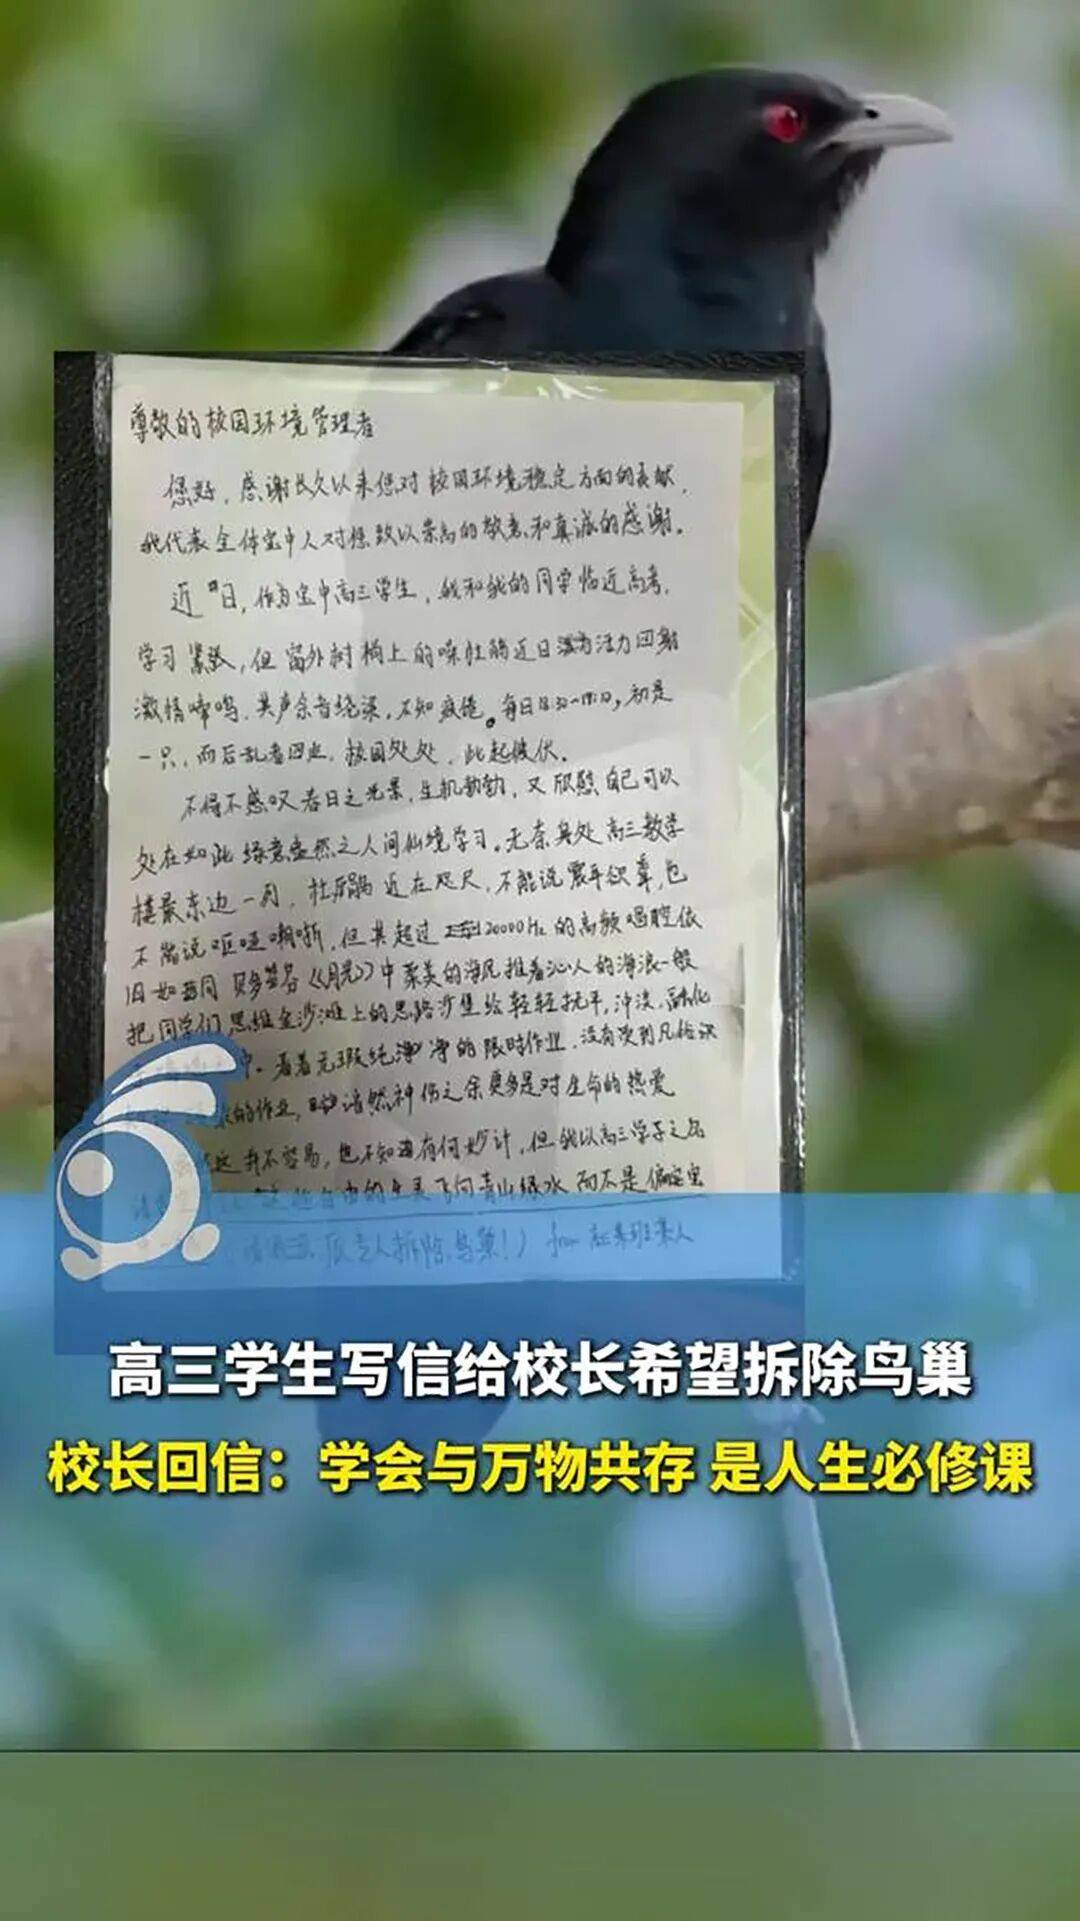 尊敬的校园环境管理者
您好，感谢长久以来您对校园环境稳定方面的贡献，
我代表全体宝中人对您致以崇高的敬意和真诚的感谢。
近日，作为宝中高三学生，我和我的同学临近高考，
学习紧张，但窗外树梢上的噪杜鹃近日活力四射
激情啼鸣，其声余音绕梁，不知疲倦。每日18:30~19:10，初是
一只，而后乱者四起，校园处处，此起彼伏。
不得不感叹春日之光景，生机勃勃，又欣慰自己可以
处在如此绿意盎然之人间仙境学习。无奈身处高三教学
楼最东边一列，杜鹃近在咫尺，不能说震耳欲聋，也
不能说呕哑嘲哳，但其超过20000Hz的高频唱腔依
旧如同贝多芬《月光》中柔美的海风推着沁人的海浪一般
把同学们思维金沙滩上的思路沙堡给轻轻抚平，冲淡，融化
看着无瑕纯净的限时作业，没有受到凡俗识
的作业，潸然神伤之余更多是对生命的热爱
并不容易，也不知有何妙计，但我以高三学子之名
自由的生灵飞向青山绿水而不是偏安宝
派专人拆除鸟巢！） from 高三某班某人
高三学生写信给校长希望拆除鸟巢
校长回信：学会与万物共存 是人生必修课